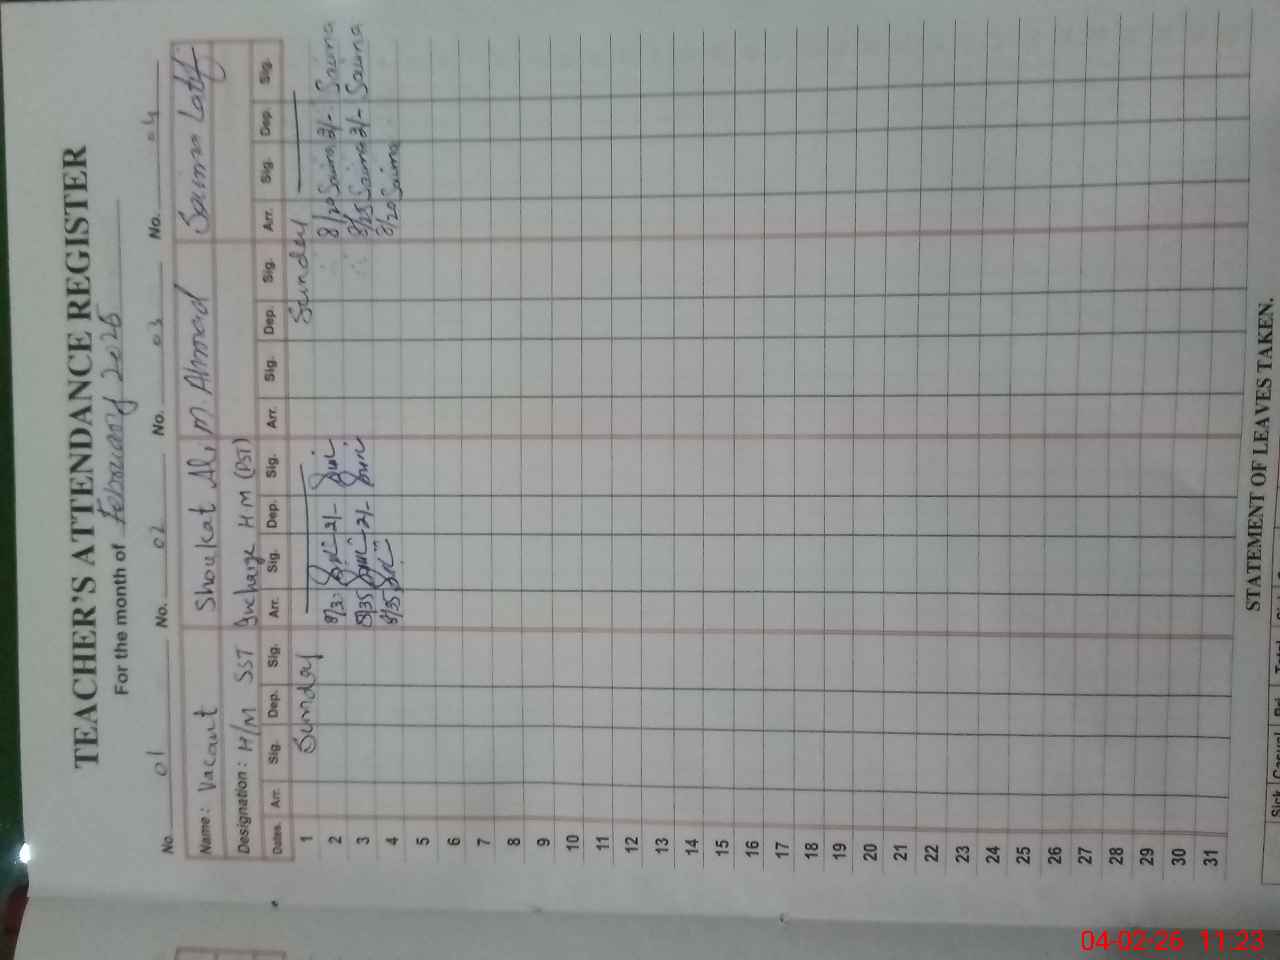 TEACHER'S ATTENDANCE REGISTER
For the month of February 2026
No. 01 No. 02 No. 03 No. 04
Name: Vacant Shoukat Ali M. Ahmad Saima Latif
Designation: H/M SST Incharge H.M (PST)
Dates. Arr. Sig. Dep. Sig. Arr. Sig. Dep. Sig. Arr. Sig. Dep. Sig. Arr. Sig. Dep. Sig.
1 Sunday Sunday
2 8/30 2/- 8/20 Saima 2/- Saima
3 8/35 2/- 8/25 Saima 2/- Saima
4 8/35 8/20 Saima
5
6
7
8
9
10
11
12
13
14
15
16
17
18
19
20
21
22
23
24
25
26
27
28
29
30
31
STATEMENT OF LEAVES TAKEN.
Sick Casual Pd. Total
04-02-26 11:23